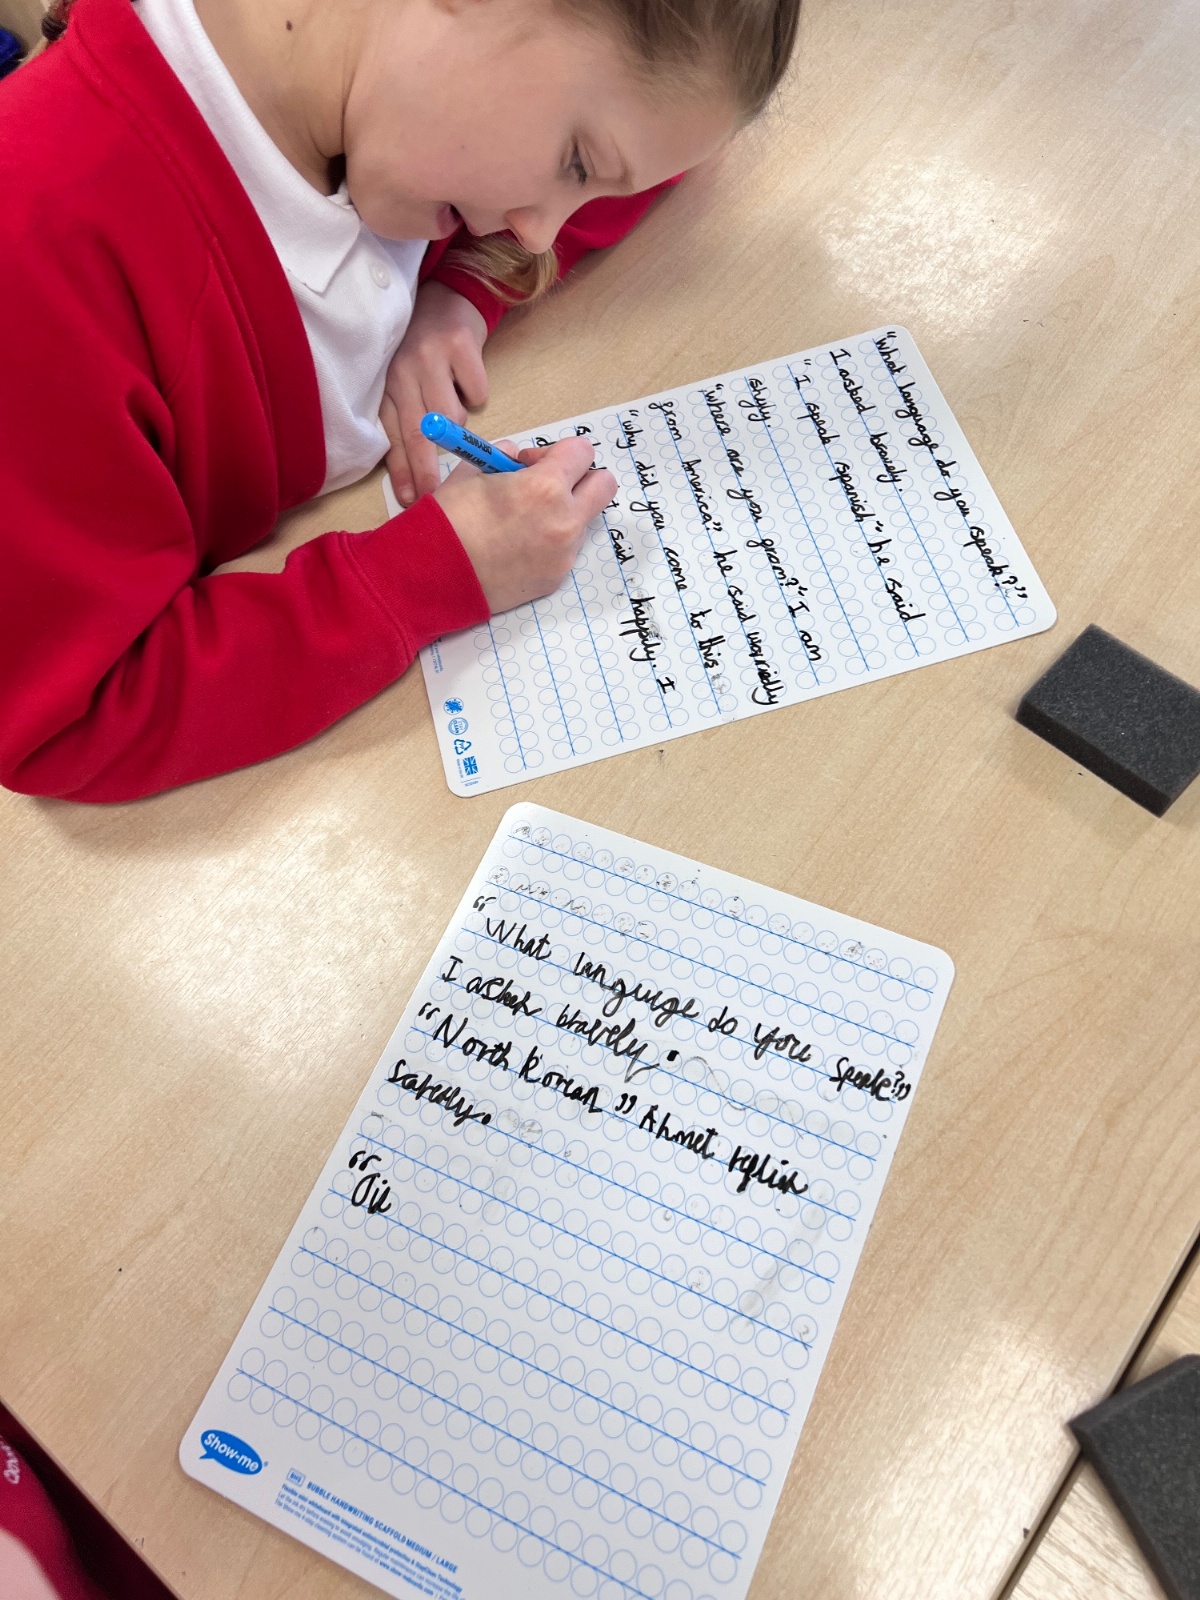 "What language do you speak?"
I asked bravely.
"I speak spanish" he said
shyly.
"where are you from?" I am
from America" he said worriedly
"why did you come to this
said happily. I
DRYWIPE
"What language do you speak?"
I asked bravely.
"North Korean" Ahmet replied
"
Show-me
BUBBLE HANDWRITING SCAFFOLD MEDIUM / LARGE